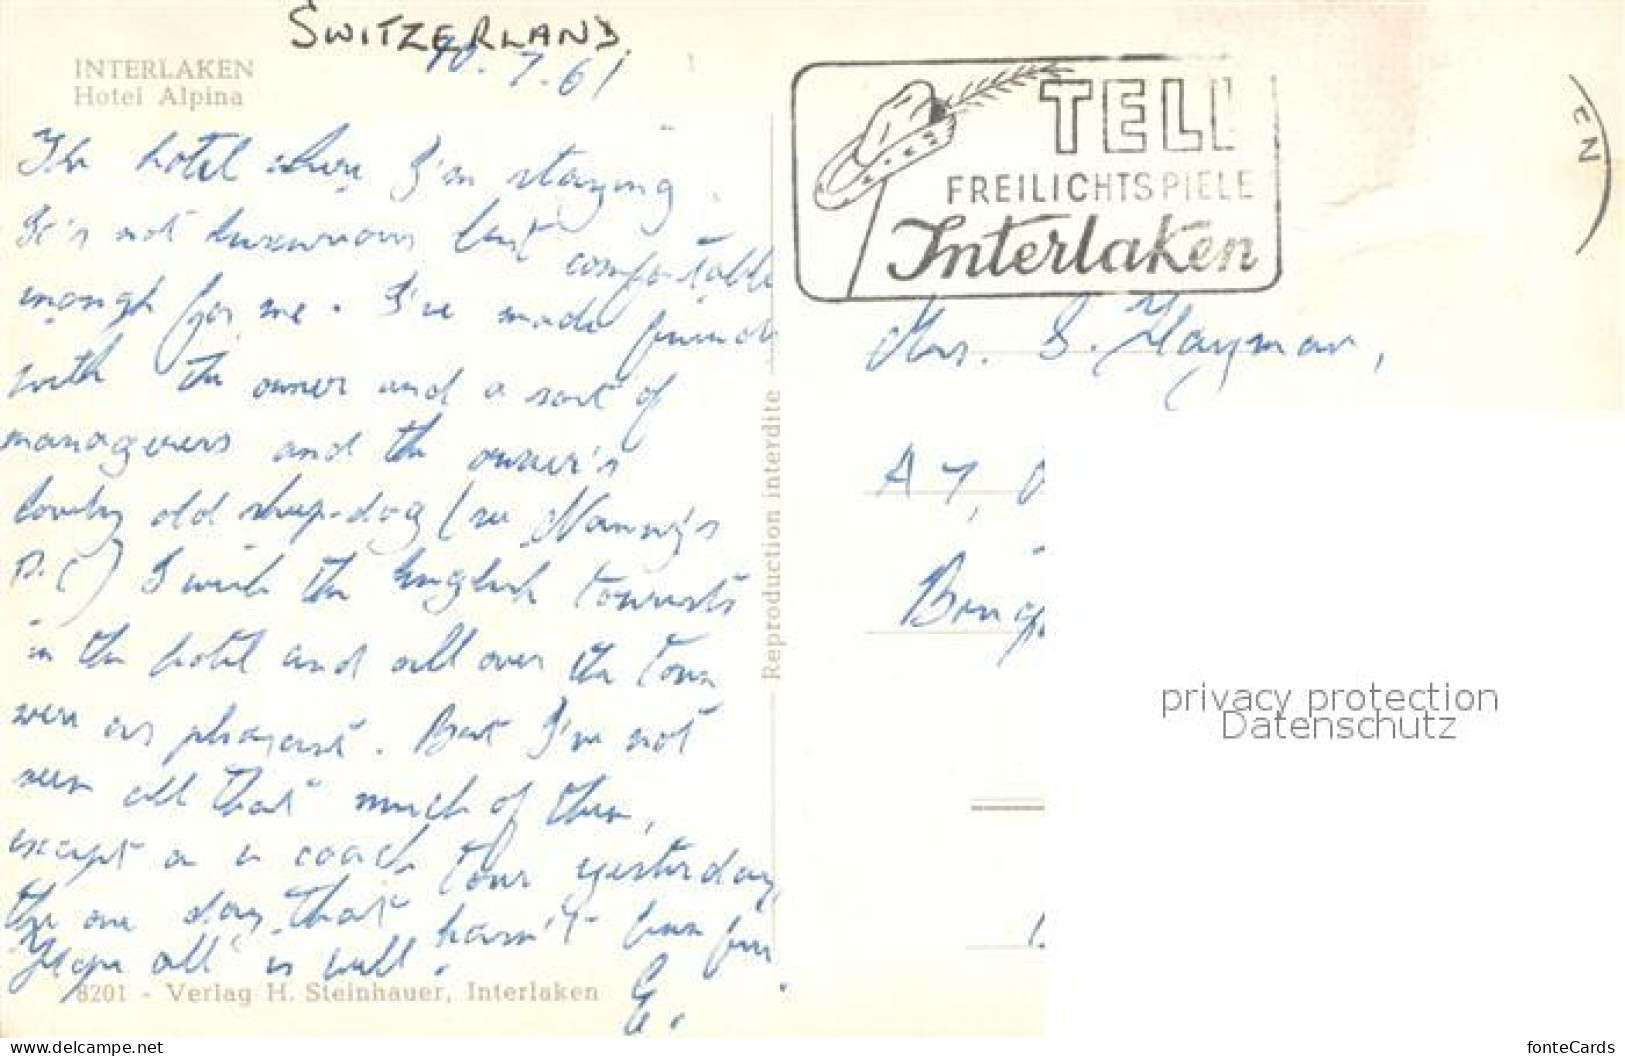 SWITZERLAND.
INTERLAKEN
Hotel Alpina
10.7.61
The hotel where I'm staying.
It's not luxurious but comfortable
enough for me. I've made friends
with the owner and a sort of
manageress and the owner's
lovely old sheep-dog (see Nanny's
P.C.) I wish the English tourists
in the hotel and all over the town
were as pleasant. But I've not
seen all that much of them,
except on a coach tour yesterday,
the one day that hasn't been fun.
Hope all is well.
E.
8201 - Verlag H. Steinhauer, Interlaken
Reproduction interdite
TELL
FREILICHTSPIELE
Interlaken
EN
Mrs. S. Hayman,
privacy protection
Datenschutz
www.delcampe.net
fonteCards